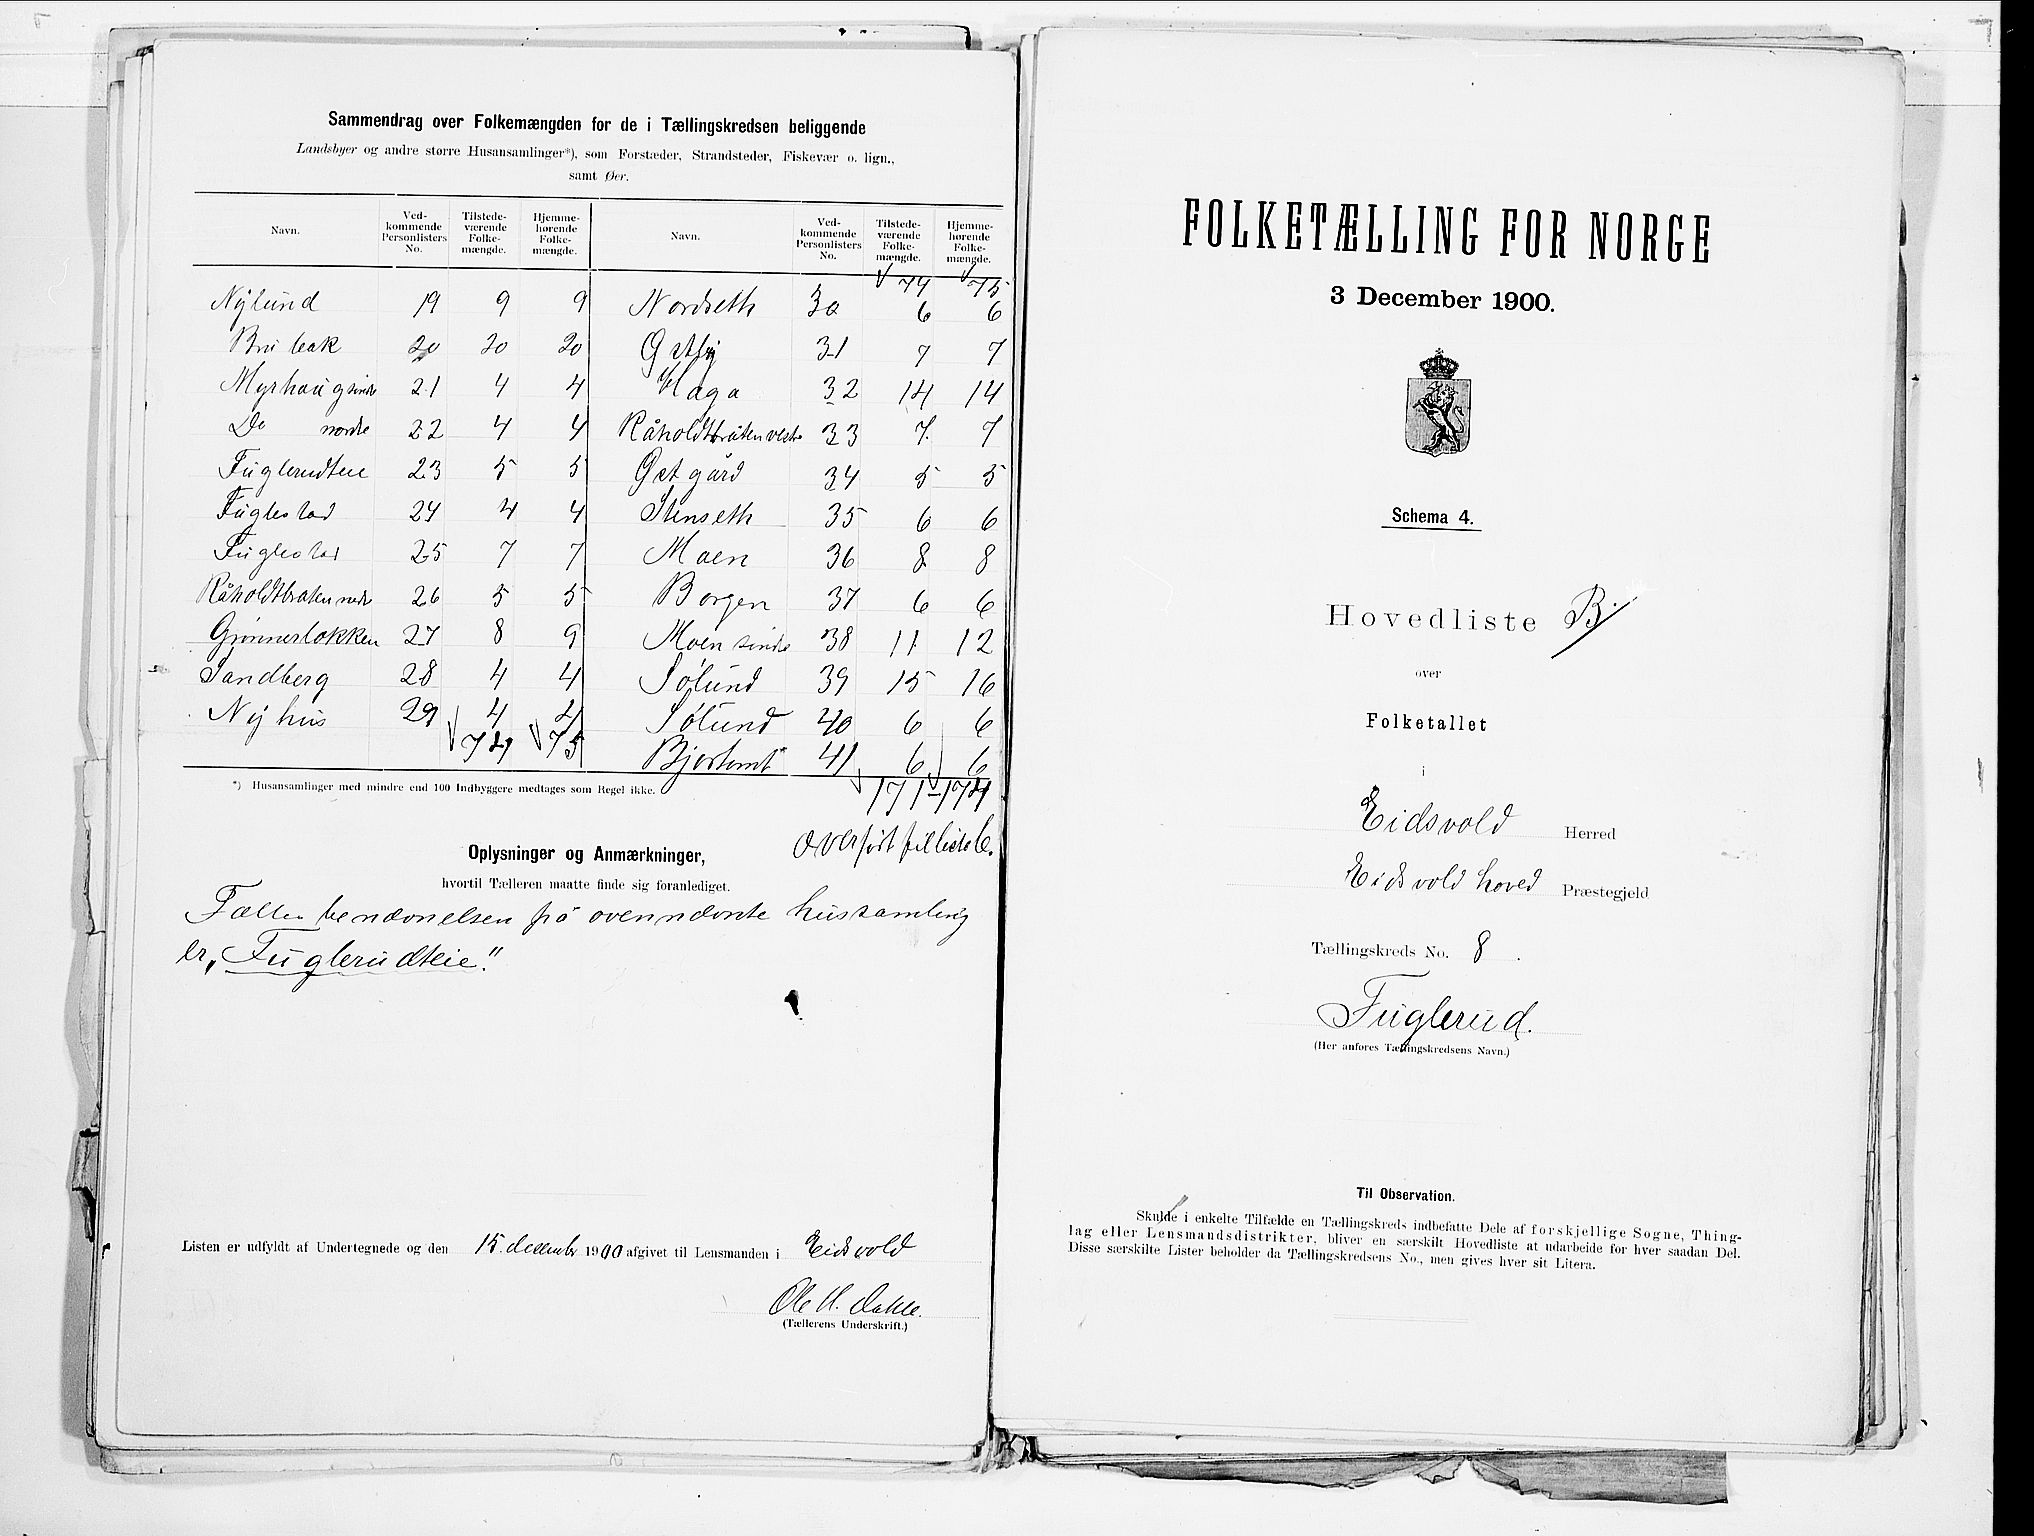 Sammendrag over Folkemængden for de i Tællingskredsen beliggende
Landsbyer og andre større Husansamlinger*), som Forstæder, Strandsteder, Fiskevær o. lign.,
samt Øer.
Navn. Ved-kommende Personlisters No. Tilstede-værende Folke-mængde. Hjemme-hørende Folke-mængde. Navn. Ved-kommende Personlisters No. Tilstede-værende Folke-mængde. Hjemme-hørende Folke-mængde.
74 75
Nylund 19 9 9 Nordseth 30 6 6
Brubak 20 20 20 Østby 31 7 7
Myrhaug søndre 21 4 4 Haga 32 14 14
Do nordre 22 4 4 Råholdtbråten vestre 33 7 7
Fuglerudteie 23 5 5 Østgård 34 5 5
Fuglestad 24 4 4 Stenseth 35 6 6
Fuglestad 25 7 7 Moen 36 8 8
Råholdtbraten nedr 26 5 5 Borgen 37 6 6
Grønnerløkken 27 8 9 Moen søndre 38 11 12
Sandberg 28 4 4 Sølund 39 15 16
Nyhus 29 4 4 Sølund 40 6 6
74 75 Bjertomt 41 6 6
*) Husansamlinger med mindre end 100 Indbyggere medtages som Regel ikke.
171 174
overført til liste C.
Oplysninger og Anmærkninger,
hvortil Tælleren maatte finde sig foranlediget.
Fælles benævnelsen på ovennævnte hussamling
er „Fuglerudteie".
Listen er udfyldt af Undertegnede og den 15. desembr 1900 afgivet til Lensmanden i Eidsvold
Ole H. Dahle.
(Tællerens Underskrift.)
FOLKETÆLLING FOR NORGE
3 December 1900.
Schema 4.
Hovedliste B.
over
Folketallet
i
Eidsvold Herred
Eidsvold hoved Præstegjeld
Tællingskreds No. 8.
Fuglerud.
(Her anføres Tællingskredsens Navn.)
Til Observation.
Skulde i enkelte Tilfælde en Tællingskreds indbefatte Dele af forskjellige Sogne, Thing-
lag eller Lensmandsdistrikter, bliver en særskilt Hovedliste at udarbeide for hver saadan Del.
Disse særskilte Lister beholder da Tællingskredsens No., men gives hver sit Litera.